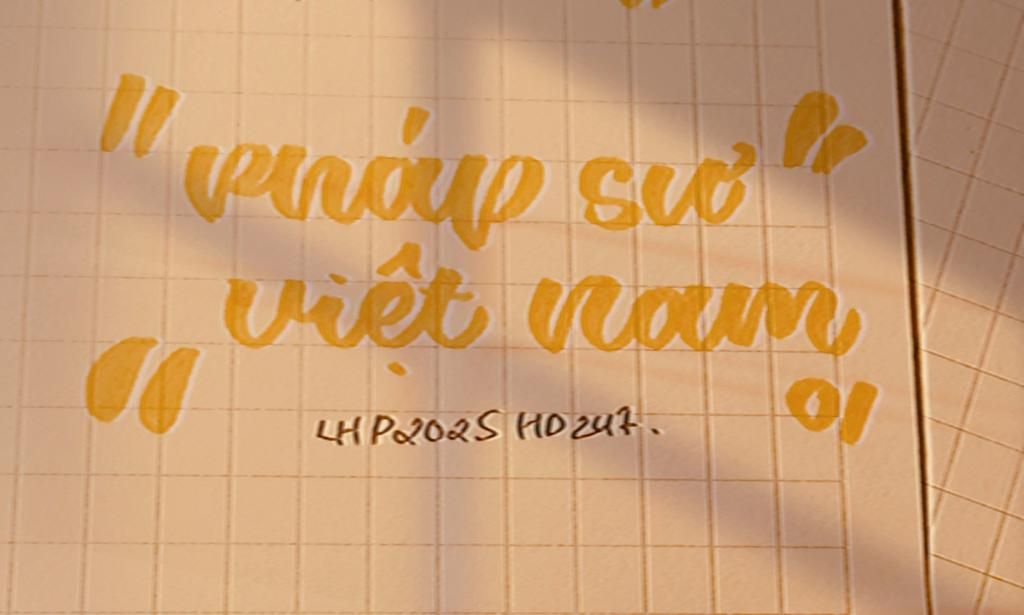 "pháp sư"
việt nam
LHP2025 HD247.